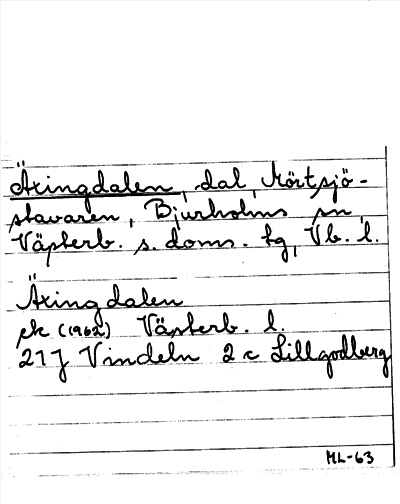 Äxingdalen, dal, Mörtsjö-
stavaren, Bjurholms sn,
Västerb. s. doms. tg, Vb. l.
Äxingdalen
ek (1962) Västerb. l.
21J Vindeln 2 c Lillgodberg
ML-63